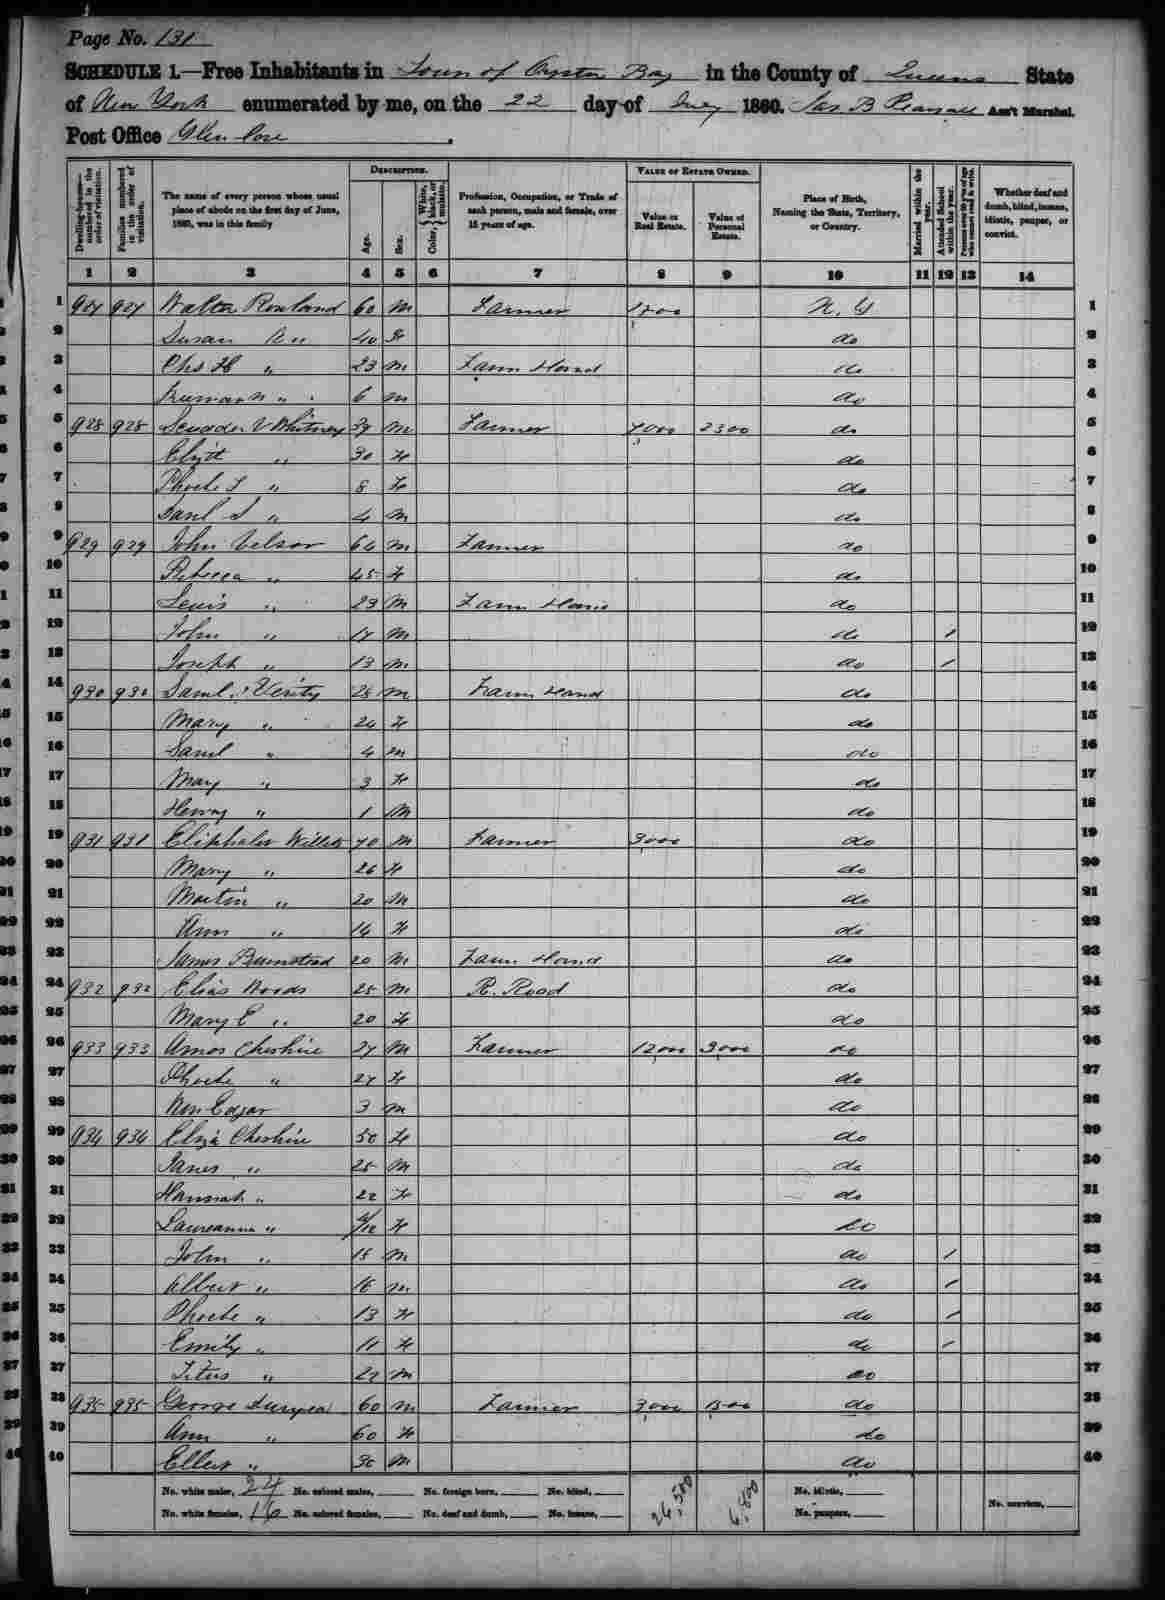 Page No. 131
SCHEDULE 1.—Free Inhabitants in Town of Oyster Bay in the County of Queens State
of New York enumerated by me, on the 22 day of July 1860. Jas B Pearsall Ass't Marshal.
Post Office Glen Cove.
Dwelling-houses—numbered in the order of visitation.
Families numbered in the order of visitation.
The name of every person whose usual place of abode on the first day of June, 1860, was in this family
DESCRIPTION.
Age.
Sex.
Color, White, black, or mulatto.
Profession, Occupation, or Trade of each person, male and female, over 15 years of age.
VALUE OF ESTATE OWNED.
Value of Real Estate.
Value of Personal Estate.
Place of Birth, Naming the State, Territory, or Country.
Married within the year.
Attended School within the year.
Persons over 20 y'rs of age who cannot read & write.
Whether deaf and dumb, blind, insane, idiotic, pauper, or convict.
1 2 3 4 5 6 7 8 9 10 11 12 13 14
1 927 Walter Rowland 60 M Farmer N. Y 1
2 Susan " 40 F do 2
3 Chs H " 23 M Farm Hand do 3
4 Truman " 6 M do 4
5 928 928 Scudder V Whitney 37 M Farmer 7000 2300 do 5
6 " 30 F do 6
7 Phoebe " 8 F do 7
8 Danl S " 4 M do 8
9 929 929 John Velsor 64 M Farmer do 9
10 Rebecca " 45 F do 10
11 Lewis " 23 M Farm Hand do 11
12 John " 17 M do / 12
13 Joseph " 13 M do / 13
14 930 930 Saml Verity 28 M Farm Hand do 14
15 Mary " 24 F do 15
16 Saml " 4 M do 16
17 Mary " 3 F do 17
18 Henry " 1 M do 18
19 931 931 Eliphalet Willets 70 M Farmer 3000 do 19
20 Mary " 26 F do 20
21 Martin " 20 M do 21
22 Ann " 14 F do 22
23 James 20 M Farm Hand do 23
24 932 932 Elias Woods 25 M R. Road do 24
25 Mary E " 20 F do 25
26 933 933 Amos Cheshire 27 M Farmer 12,000 3000 do 26
27 Phoebe " 27 F do 27
28 Wm Edgar 3 M do 28
29 934 934 Eliza Cheshire 50 F do 29
30 James " 25 M do 30
31 Hannah " 22 F do 31
32 Laureanna " F do 32
33 John " 18 M do / 33
34 Albert " 16 M do / 34
35 Phoebe " 13 F do / 35
36 Emily " 11 F do / 36
37 Titus " 22 M do 37
38 935 935 George Duryea 60 M Farmer 3000 1500 do 38
39 Ann " 60 F do 39
40 Elbert " 30 M do 40
No. white males, 24 No. colored males, No. foreign born, No. blind, 26,500 6,800 No. idiotic,
No. white females, 16 No. colored females, No. deaf and dumb, No. insane, No. paupers, No. convicts,